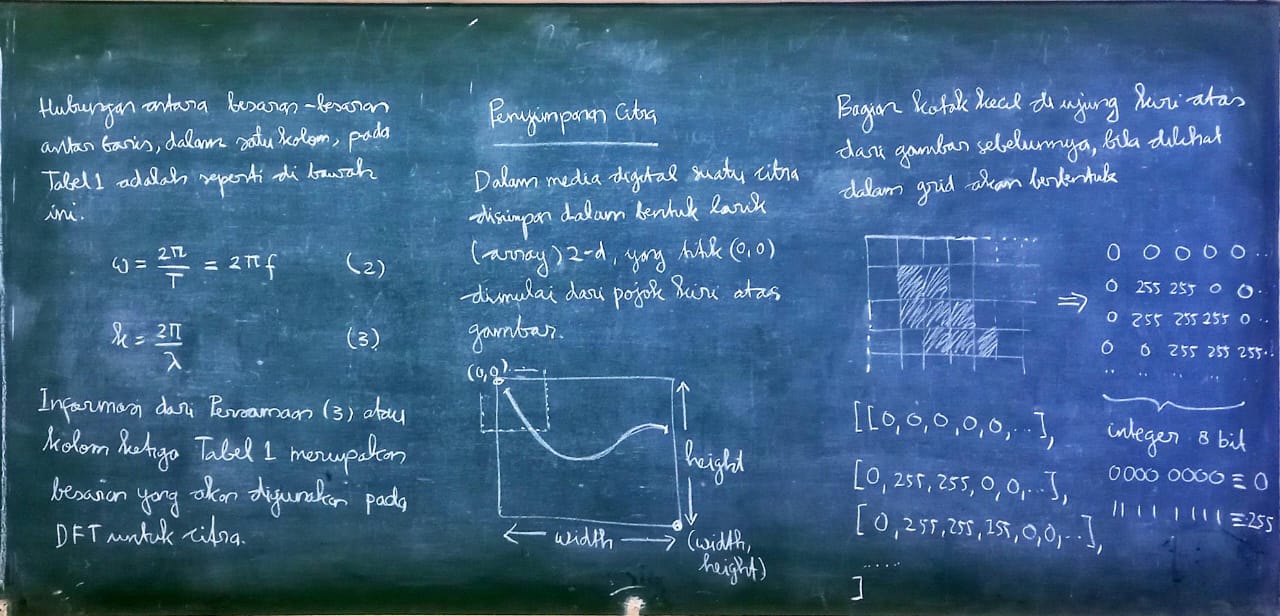 Hubungan antara besaran-besaran
antar baris, dalam satu kolom, pada
Tabel 1 adalah seperti di bawah
ini.
ω = 2π/T = 2πf (2)
k = 2π/λ (3)
Informasi dari Persamaan (3) atau
kolom ketiga Tabel 1 merupakan
besaran yang akan digunakan pada
DFT untuk citra.
Penyimpanan Citra
Dalam media digital suatu citra
disimpan dalam bentuk larik
(array) 2-d, yang titik (0,0)
dimulai dari pojok kiri atas
gambar.
(0,0)
height
width
(width,
height)
Bagian kotak kecil di ujung kiri atas
dari gambar sebelumnya, bila dilihat
dalam grid akan berbentuk
⇒
0 0 0 0 0 ..
0 255 255 0 0 ..
0 255 255 255 0 ..
0 0 255 255 255 ..
.. .. .. ..
integer 8 bit
0000 0000 ≡ 0
1111 1111 ≡ 255
[[0, 0, 0, 0, 0, ...],
[0, 255, 255, 0, 0, ...],
[0, 255, 255, 255, 0, 0, ...],
.....
]